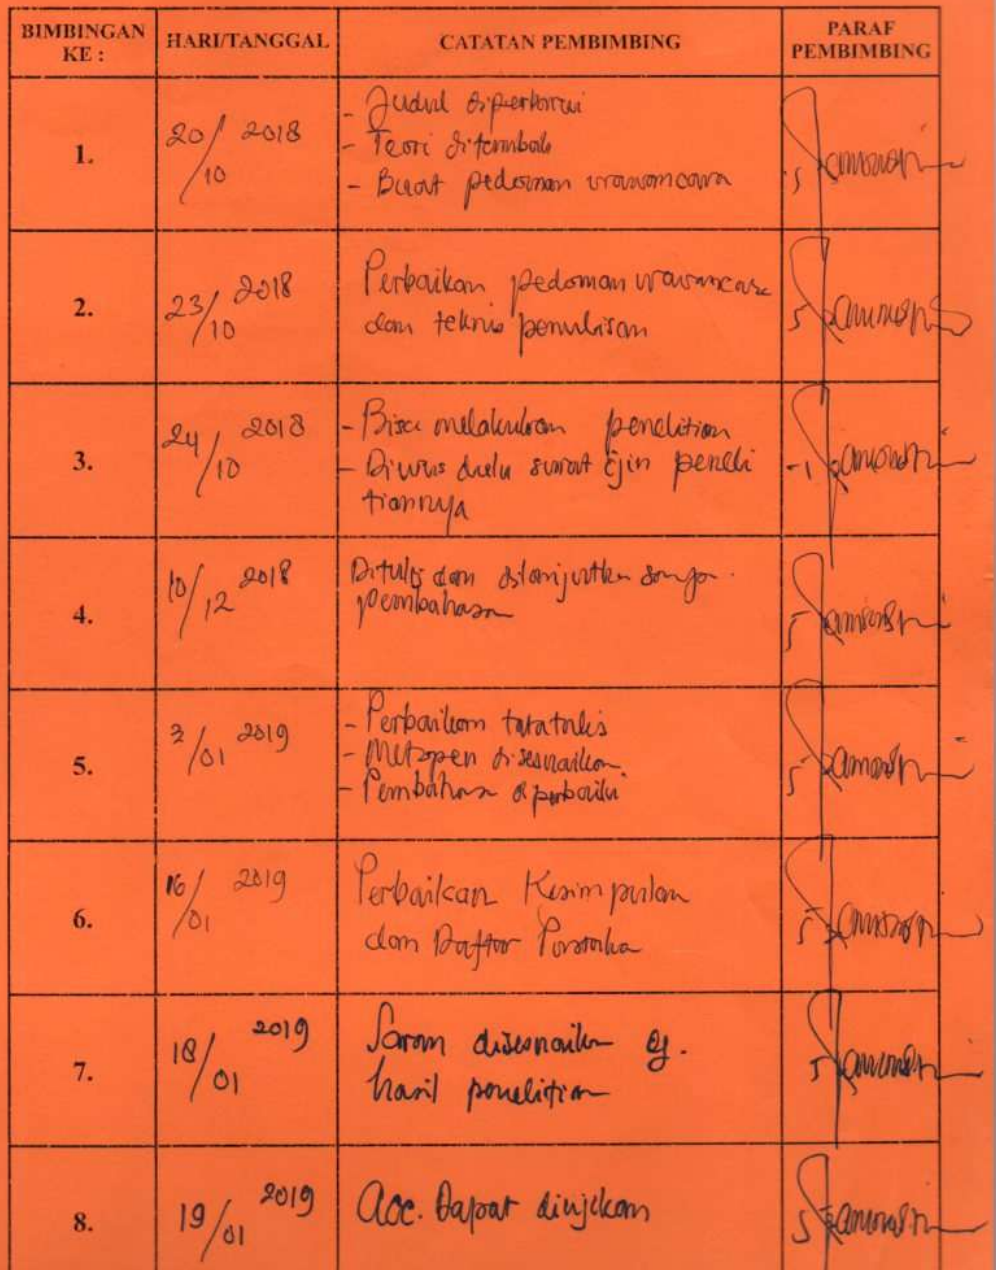 BIMBINGAN KE : HARI/TANGGAL CATATAN PEMBIMBING PARAF PEMBIMBING
1. 20/10 2018
- Judul diperbaiki
- Teori ditambah
- Buat pedoman wawancara
2. 23/10 2018
Perbaikan pedoman wawancara
dan teknis penulisan
3. 24/10 2018
- Bisa melakukan penelitian
- Diurus dulu surat ijin peneli
tiannya
4. 10/12 2018
Ditulis dan dilanjutkan
pembahasan
5. /01 2019
- Perbaikan tatatulis
- Metopen disesuaikan
- Pembahasan diperbaiki
6. 16/01 2019
Perbaikan Kesimpulan
dan Daftar Pustaka
7. 18/01 2019
Saran disesuaikan dg.
hasil penelitian
8. 19/01 2019
acc. Dapat diujikan